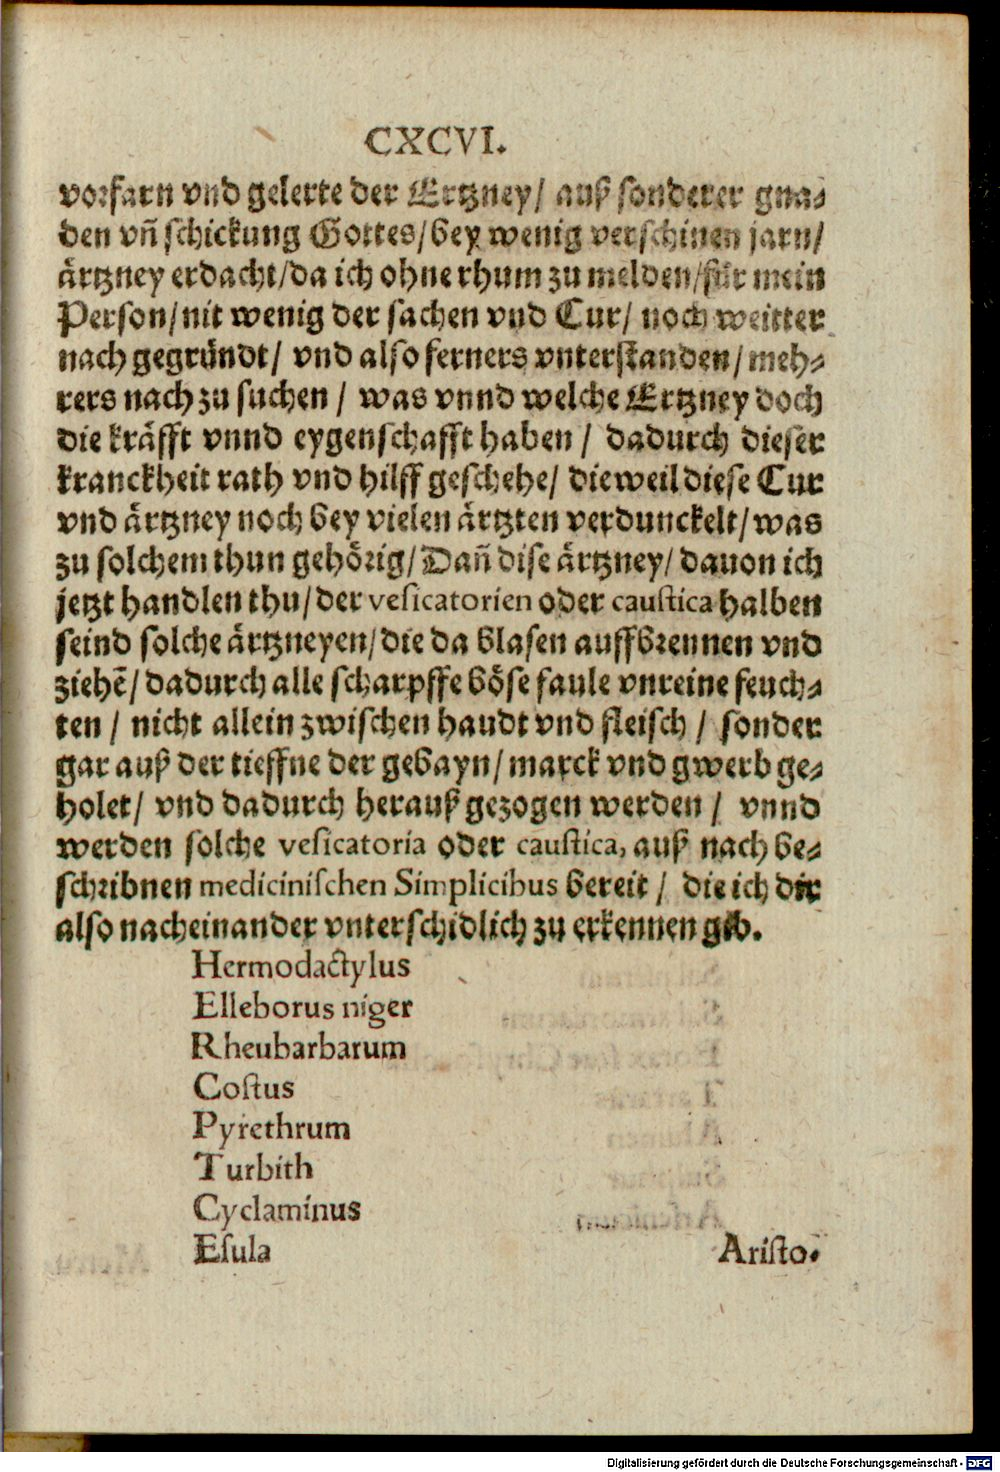 CXCVI.
vorfarn vnd gelerte der Ertzney/ auß sonderer gna⸗
den vñ schickung Gottes/bey wenig verschinen jarn/
ärtzney erdacht/da ich ohne rhum zu melden/für mein
Person/nit wenig der sachen vnd Cur/ noch weitter
nach gegründt/ vnd also ferners vnterstanden/meh⸗
rers nach zu suchen / was vnnd welche Ertzney doch
die kräfft vnnd eygenschafft haben / dadurch dieser
kranckheit rath vnd hilff geschehe/ dieweil diese Cur
vnd ärtzney noch bey vielen ärtzten verdunckelt/was
zu solchem thun gehörig/Dañ dise ärtzney/ dauon ich
jetzt handlen thu/der vesicatorien oder caustica halben
seind solche ärtzneyen/die da blasen auffbrennen vnd
ziehē/dadurch alle scharpffe böse faule vnreine feuch⸗
ten / nicht allein zwischen haudt vnd fleisch / sonder
gar auß der tieffne der gebayn/marck vnd gwerb ge⸗
holet/ vnd dadurch herauß gezogen werden / vnnd
werden solche vesicatoria oder caustica, auß nach be⸗
schribnen medicinischen Simplicibus bereit / die ich dir
also nacheinander vnterschidlich zu erkennen gib.
Hermodactylus
Elleborus niger
Rheubarbarum
Costus
Pyrethrum
Turbith
Cyclaminus
Esula
Aristo⸗
Digitalisierung gefördert durch die Deutsche Forschungsgemeinschaft - DFG